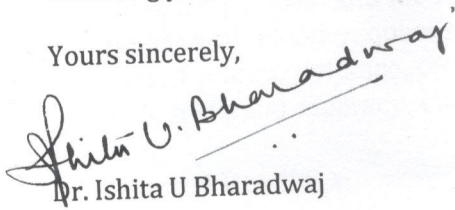 Yours sincerely,
Ishita U. Bharadwaj
Dr. Ishita U Bharadwaj